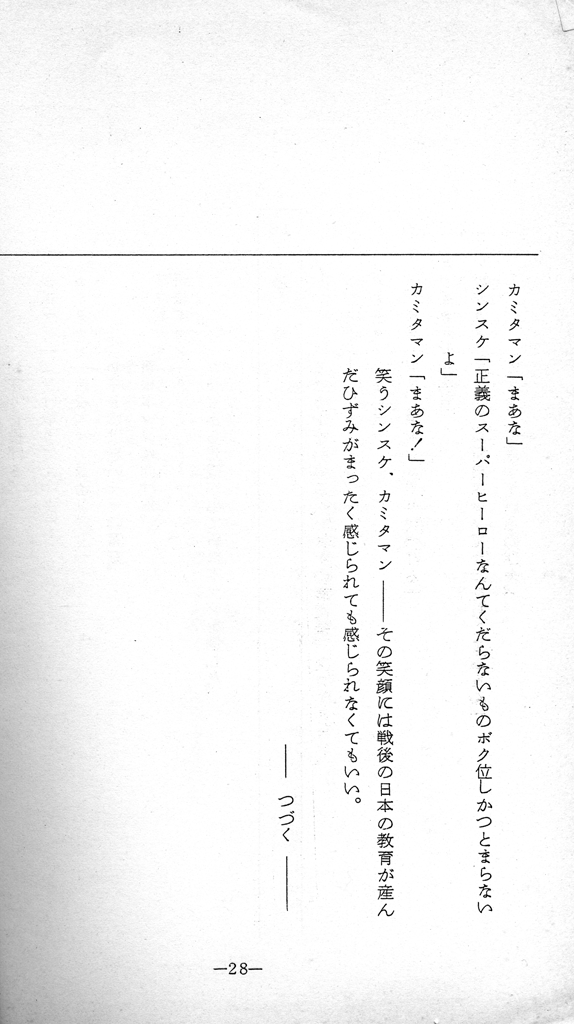 カミタマン「まあな」
シンスケ「正義のスーパーヒーローなんてくだらないものボク位しかつとまらない
よ」
カミタマン「まあな!」
笑うシンスケ、カミタマン――その笑顔には戦後の日本の教育が産ん
だひずみがまったく感じられても感じられなくてもいい。
―― つづく ――
—28—